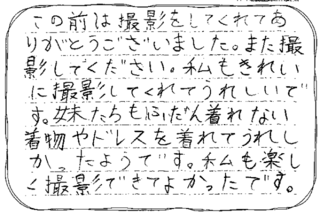 この前は撮影をしてくれてあ
りがとうございました。また撮
影してください。私もきれい
に撮影してくれてうれしいで
す。妹たちもふだん着れない
着物やドレスを着れてうれし
かったようです。私も楽し
く撮影できてよかったです。